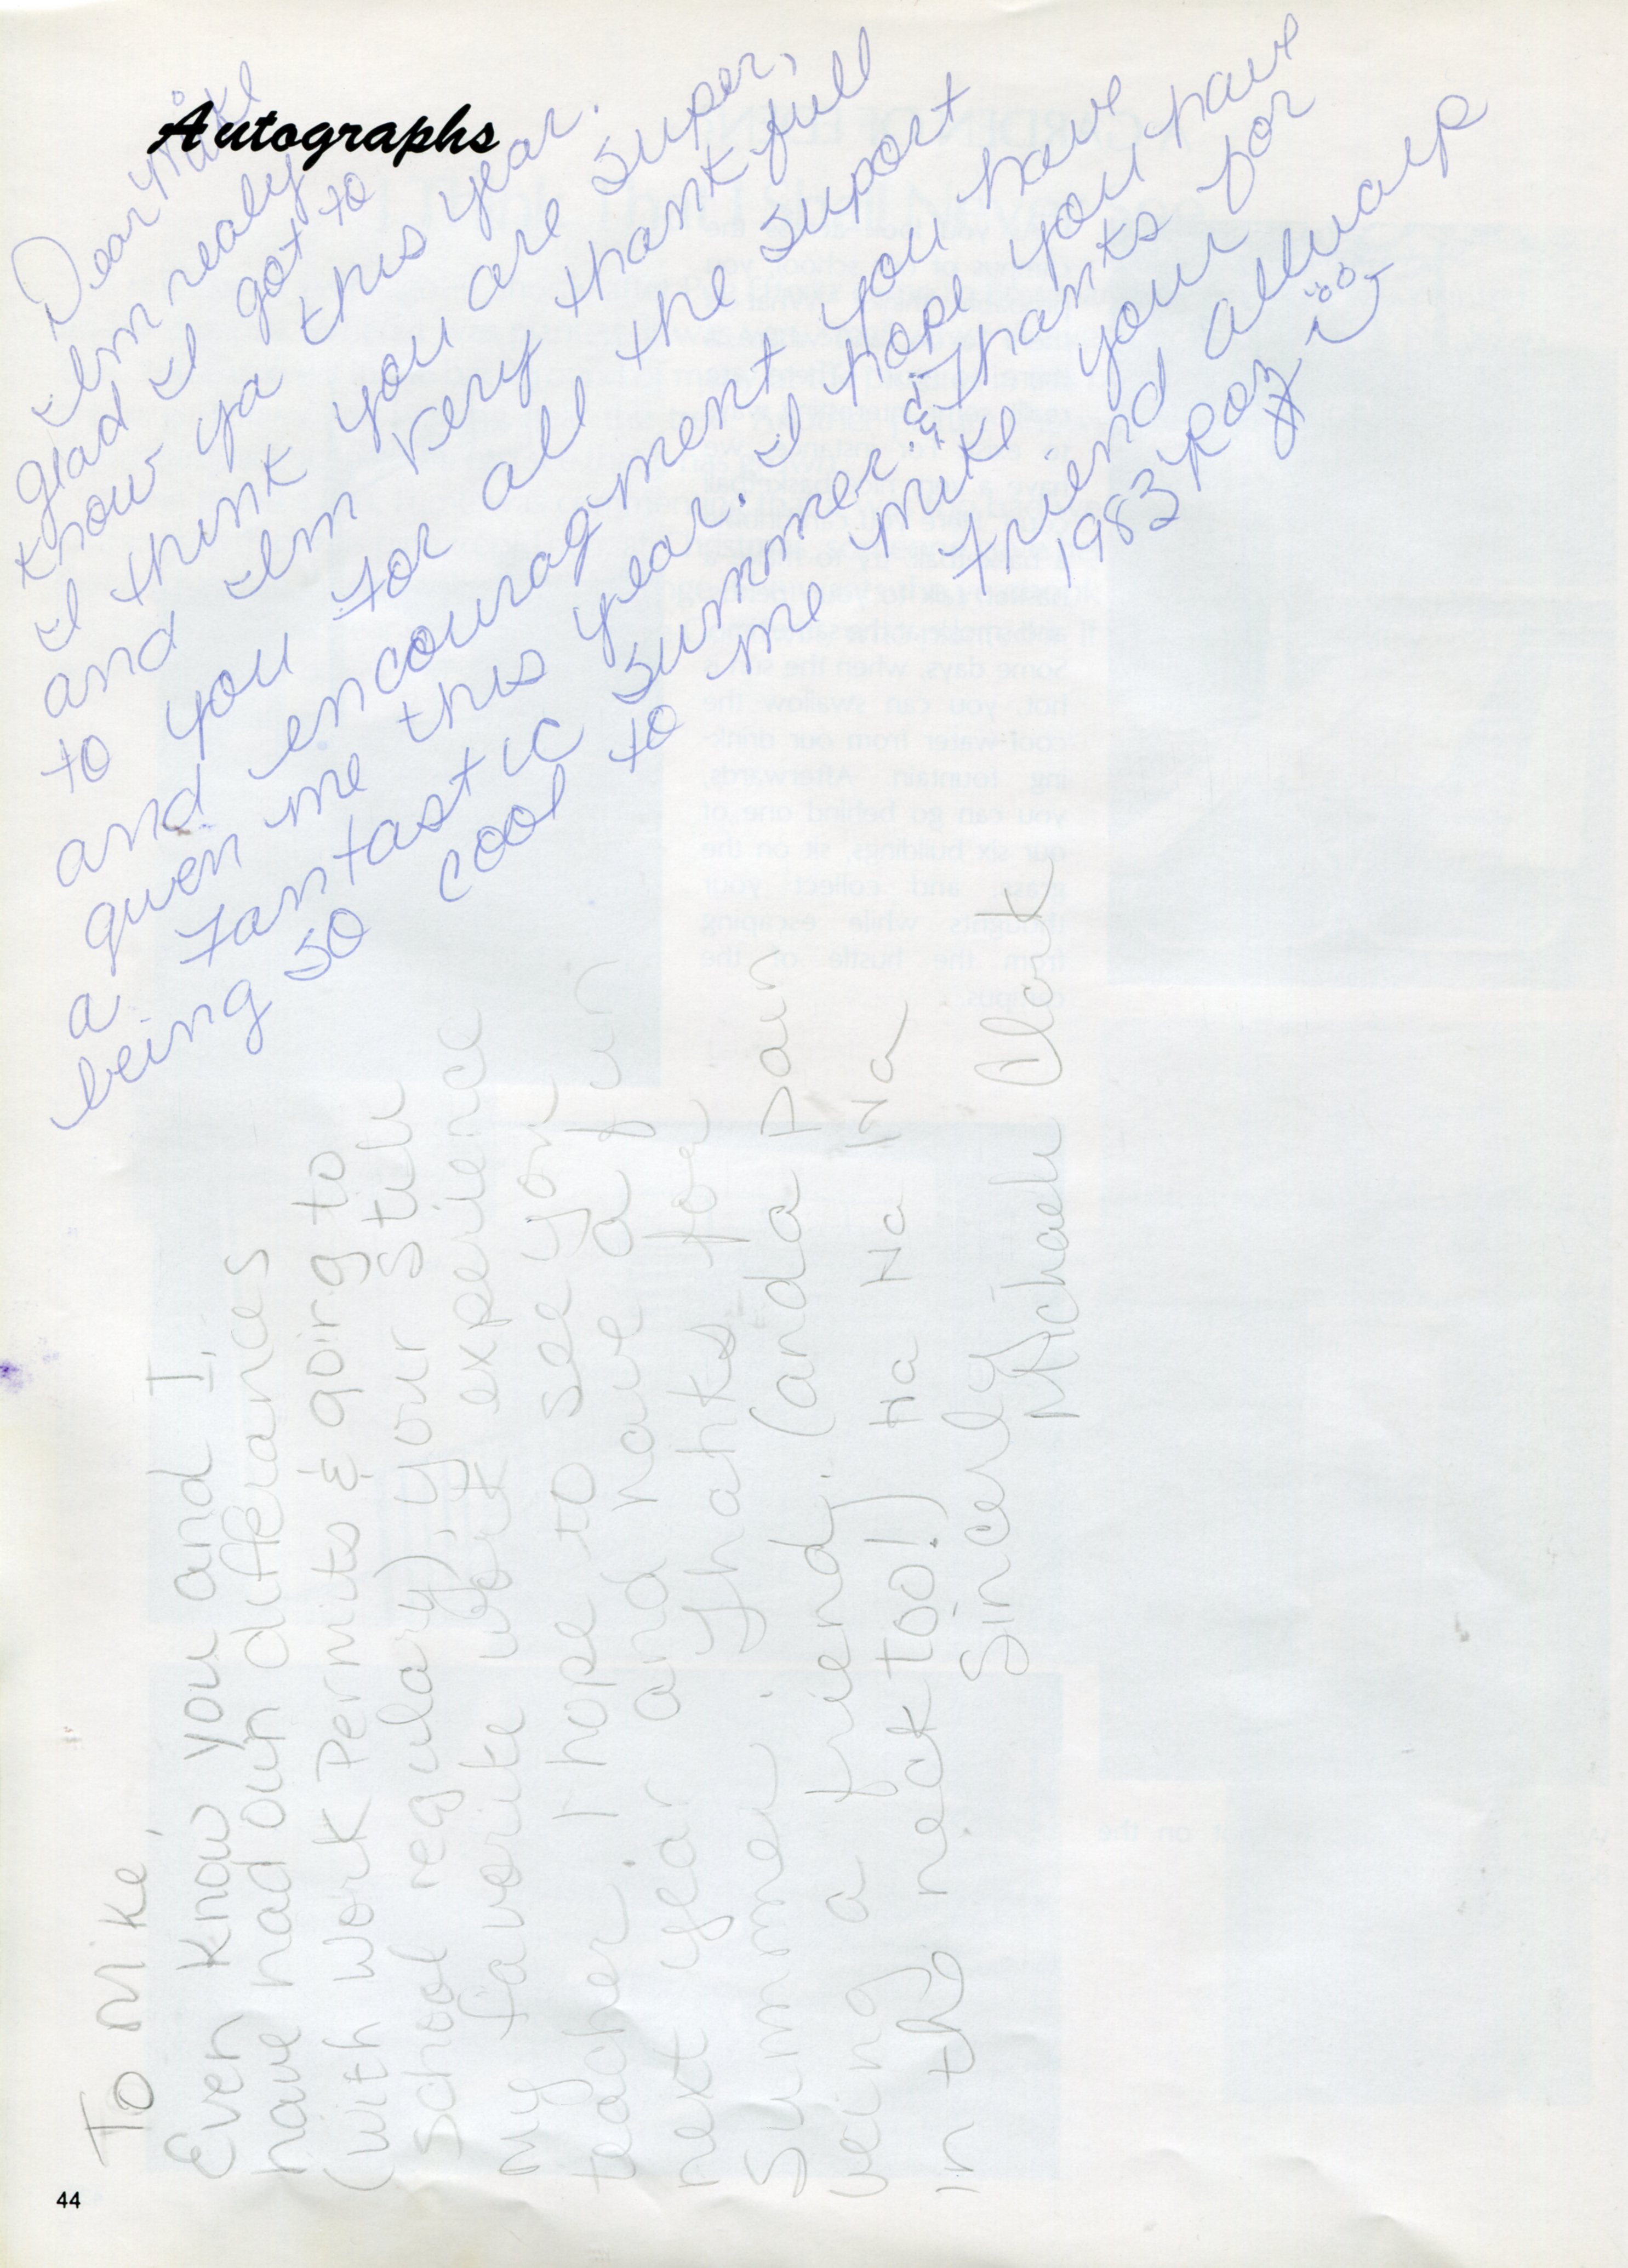 Autographs
Dear Mike
I'm really
glad I got to
know ya this year.
I think you are super,
and I'm very thankfull
to you for all the suport
and encouragment you have
given me this year. I hope you have
a fantastic summer. Thanks for
being so cool to me Mike your
friend allways
1983 Roz
To Mike,
Even know you and I,
have had our differances
(with work Permits & going to
School regulary), your still
my favorite work experience
teacher. I hope to see you
next year and have a fun
Summer. Thanks for
being a friend. (and a pain
in the neck too!) Ha Ha Ha Ha
Sincerly
Michaele Clark
44